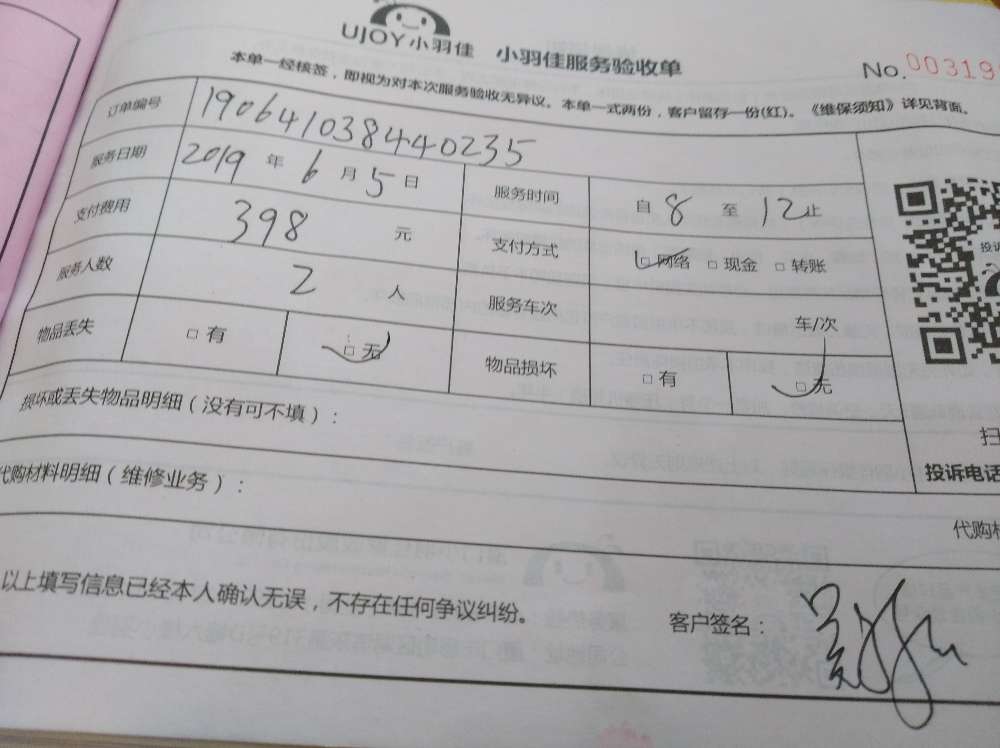 UJOY小羽佳 小羽佳服务验收单
No.00319
本单一经核签，即视为对本次服务验收无异议。本单一式两份，客户留存一份(红)。《维保须知》详见背面。
订单编号 190641038440235
服务日期 2019 年 6 月 5 日 服务时间 自 8 至 12 止
支付费用 398 元 支付方式 □网络 □现金 □转账
服务人数 2 人 服务车次 车/次
物品丢失 □有 □无 物品损坏 □有 □无
损坏或丢失物品明细（没有可不填）：
扫
投诉电话
代购材料明细（维修业务）：
代购材
以上填写信息已经本人确认无误，不存在任何争议纠纷。
客户签名：